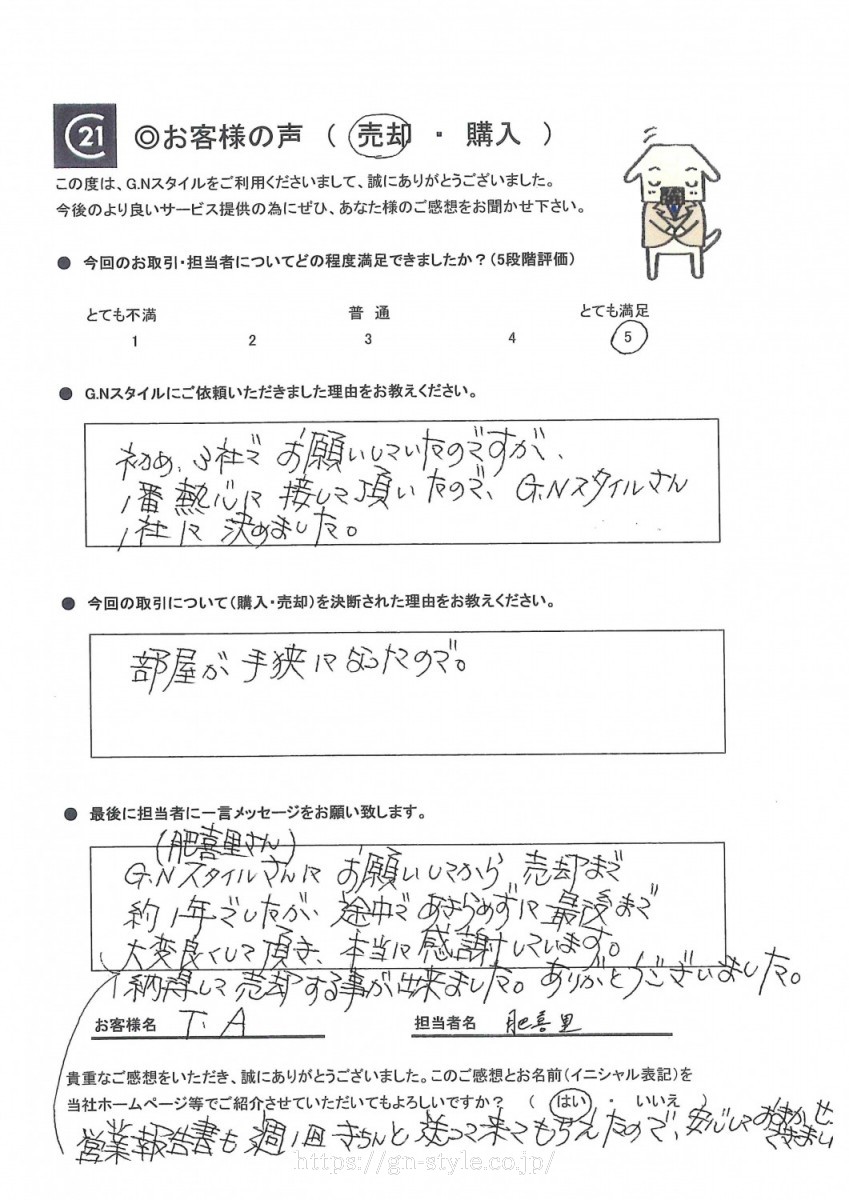 C21
◎お客様の声 ( 売却 ・ 購入 )
この度は、G.Nスタイルをご利用くださいまして、誠にありがとうございました。
今後のより良いサービス提供の為にぜひ、あなた様のご感想をお聞かせ下さい。
● 今回のお取引・担当者についてどの程度満足できましたか？(5段階評価)
とても不満 普 通 とても満足
1 2 3 4 5
● G.Nスタイルにご依頼いただきました理由をお教えください。
初め、3社でお願いしていたのですが、
1番熱心に接して頂いたので、G.Nスタイルさん
1社に決めました。
● 今回の取引について(購入・売却)を決断された理由をお教えください。
部屋が手狭になったので。
● 最後に担当者に一言メッセージをお願い致します。
(肥喜里さん)
G.Nスタイルさんにお願いしてから売却まで
約1年でしたが、途中であきらめずに最後まで
大変良くして頂き、本当に感謝しています。
納得して売却する事が出来ました。ありがとうございました。
お客様名 T.A 担当者名 肥喜里
貴重なご感想をいただき、誠にありがとうございました。このご感想とお名前(イニシャル表記)を
当社ホームページ等でご紹介させていただいてもよろしいですか？ ( はい ・ いいえ )
営業報告書も週1回きちんと送って来てもらえたので、安心しておまかせ
できまし
https://gn-style.co.jp/